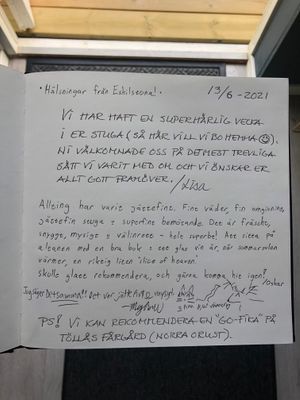 · Hälsningar från Eskilstuna! ·
13/6 - 2021
VI HAR HAFT EN SUPERHÄRLIG VECKA
I ER STUGA (SÅ HÄR VILL VI BO HEMMA ☺).
NI VÄLKOMNADE OSS PÅ DET MEST TREVLIGA
SÄTT VI VARIT MED OM OCH VI ÖNSKAR ER
ALLT GOTT FRAMÖVER. /Lisa
Allting har varit jättefint. Fine väder, fin omgivning,
jättefin stuga & superfine bemötande. Det är fräscht,
snyggt, mysigt & välinrett - hela superbe! Att sitta på
altanen med en bra bok & ett glas vin är, när sommarsolen
värmer, en riktig liten 'slice of heaven'.
Skulle glatt rekommendera, och gärna komma hit igen!
/Oskar
Jag säger Detsamma!! det var jätte fint o mysigt
PS! VI KAN REKOMMENDERA EN "GO-FIKA" PÅ
TOLLÅS FÄRGÅRD (NORRA ORUST).